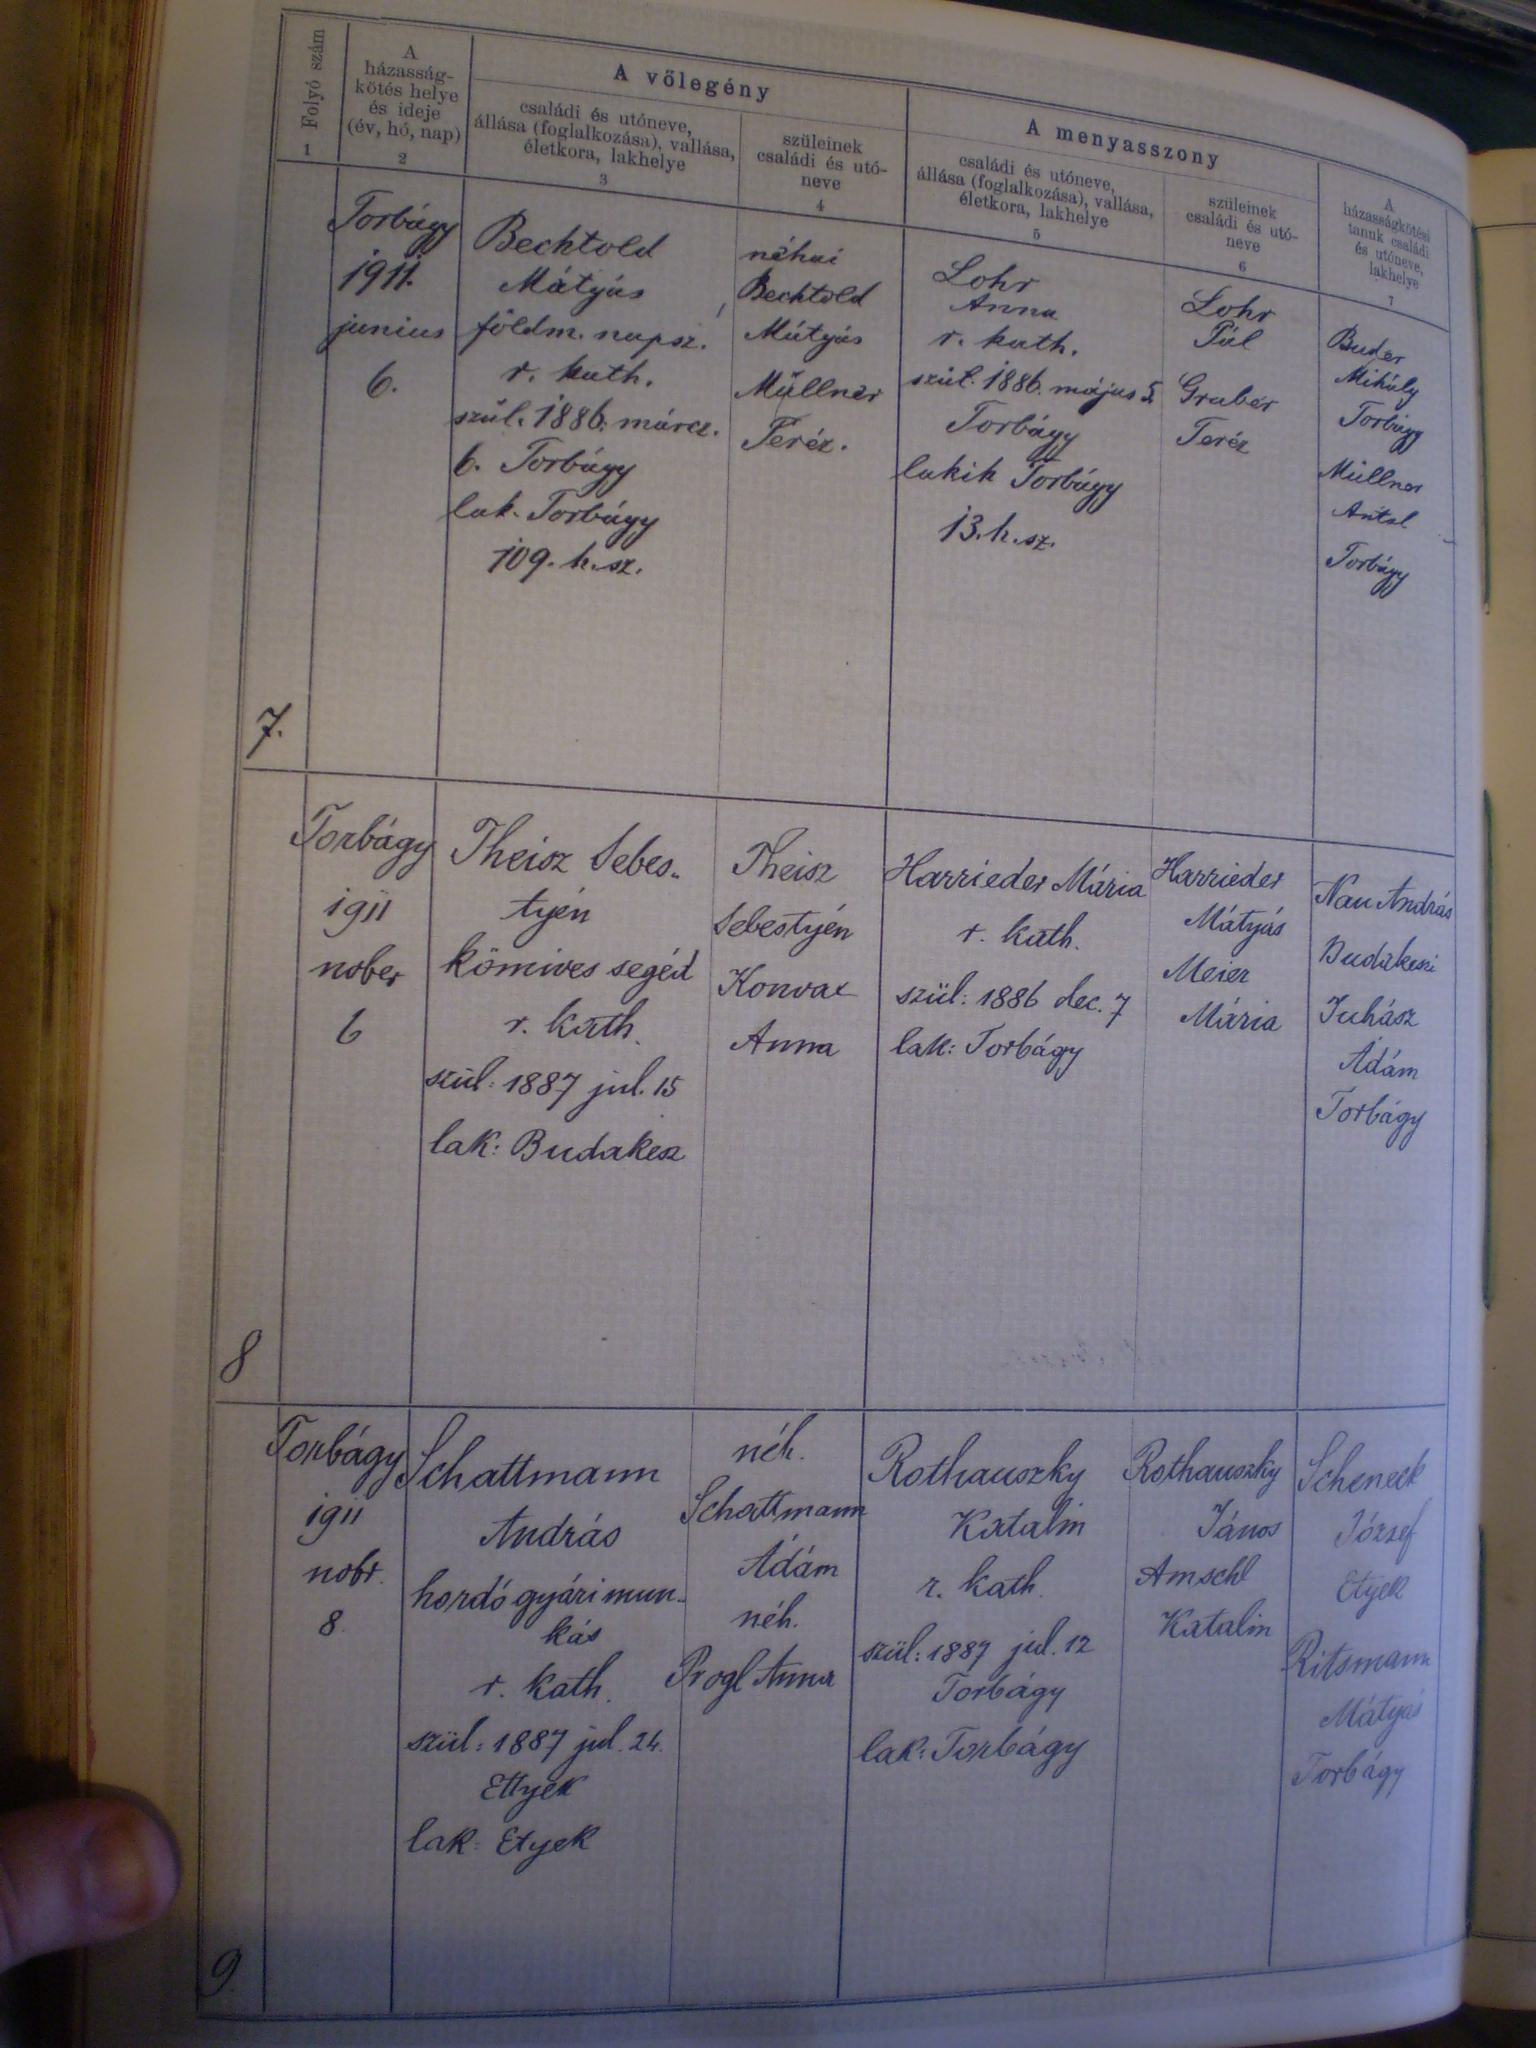 Folyó szám
1
A
házasság-
kötés helye
és ideje
(év, hó, nap)
2
A vőlegény
családi és utóneve,
állása (foglalkozása), vallása,
életkora, lakhelye
3
szüleinek
családi és utó-
neve
4
A menyasszony
családi és utóneve,
állása (foglalkozása), vallása,
életkora, lakhelye
5
szüleinek
családi és utó-
neve
6
A
házasságkötési
tanuk családi
és utóneve,
lakhelye
7
7.
Torbágy
1911.
junius
6.
Bechtold
Mátyás
földm. napsz.
r. kath.
szül. 1886. márcz.
6. Torbágy
lak. Torbágy
109. h.sz.
néhai
Bechtold
Mátyás
Müllner
Teréz.
Lohr
Anna
r. kath.
szül. 1886. május 5.
Torbágy
lakik Torbágy
13. h.sz.
Lohr
Pál
Gruber
Teréz
Buder
Mihály
Torbágy
Müllner
Antal
Torbágy
8
Torbágy
1911
nober
6
Theisz Sebes-
tyén
kömives segéd
r. kath.
szül: 1887 jul. 15
lak: Budakesz
Theisz
Sebestyén
Anna
Harrieder Mária
r. kath.
szül: 1886 dec. 7
lak: Torbágy
Harrieder
Mátyás
Meier
Mária
Nau András
Budakeszi
Juhász
Ádám
Torbágy
9
Torbágy
1911
nobr.
8.
Schattmann
András
hordó gyári mun-
kás
r. kath.
szül: 1887 jul. 24.
Ettyek
lak: Etyek
néh.
Schattmann
Ádám
néh.
Progl Anna
Rothauszky
Katalin
r. kath.
szül: 1887 jul. 12
Torbágy
lak: Torbágy
Rothauszky
János
Amschl
Katalin
Scheneck
József
Etyek
Ritsmann
Mátyás
Torbágy